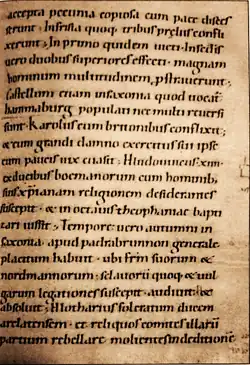 accepta pecunia copiosa cum pace disces
serunt · In frisia quoq; tribus preliis confli
xerunt · In primo quidem victi · In sedis
vero duobus superiores effecti · magnam
hominum multitudinem pstraverunt ·
Castellum etiam in saxonia quod vocat
hammaburg populati nec multi reversi
sunt · Karolus cum brittonibus conflixit ·
& cum grandi damno exercitus sui ipse
cum paucis vix evasit · Hludouuicus xiiii
ex ducibus boemanorum cum hominib;
suis xpianam religionem desiderantes
suscepit · & in octavis theophaniae bapti
zari iussit · Tempore vero autumni in
saxonia apud padrabrunnon generale
placitum habuit · ubi frm suorum &
nordmannorum · sclavorum quoq; & vul
garum legationes suscepit · audivit · &
absolvit · Hlotharius folcratum ducem
arelatensem · et reliquos comites illarum
partium rebellare molientes in deditione